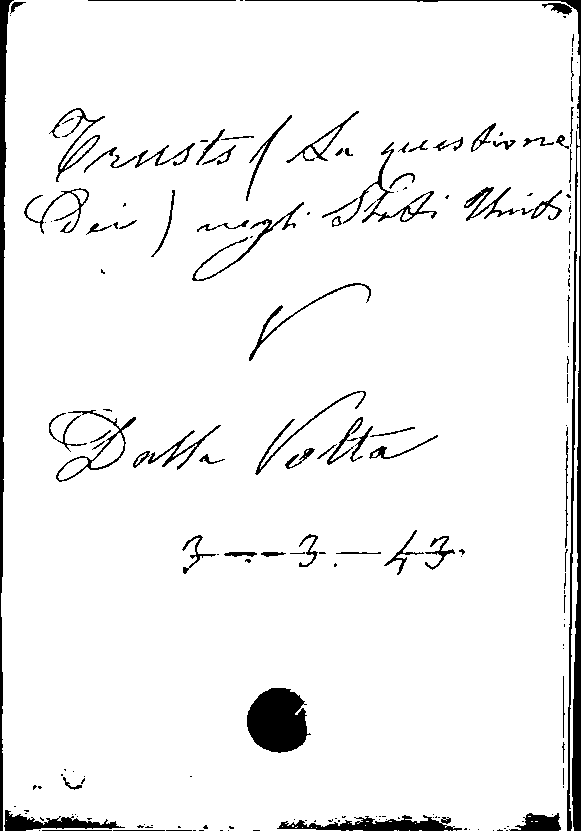 Trusts (La questione
Dei) negli Stati Uniti
V
Dalla Volta
3 - 3. - 43.